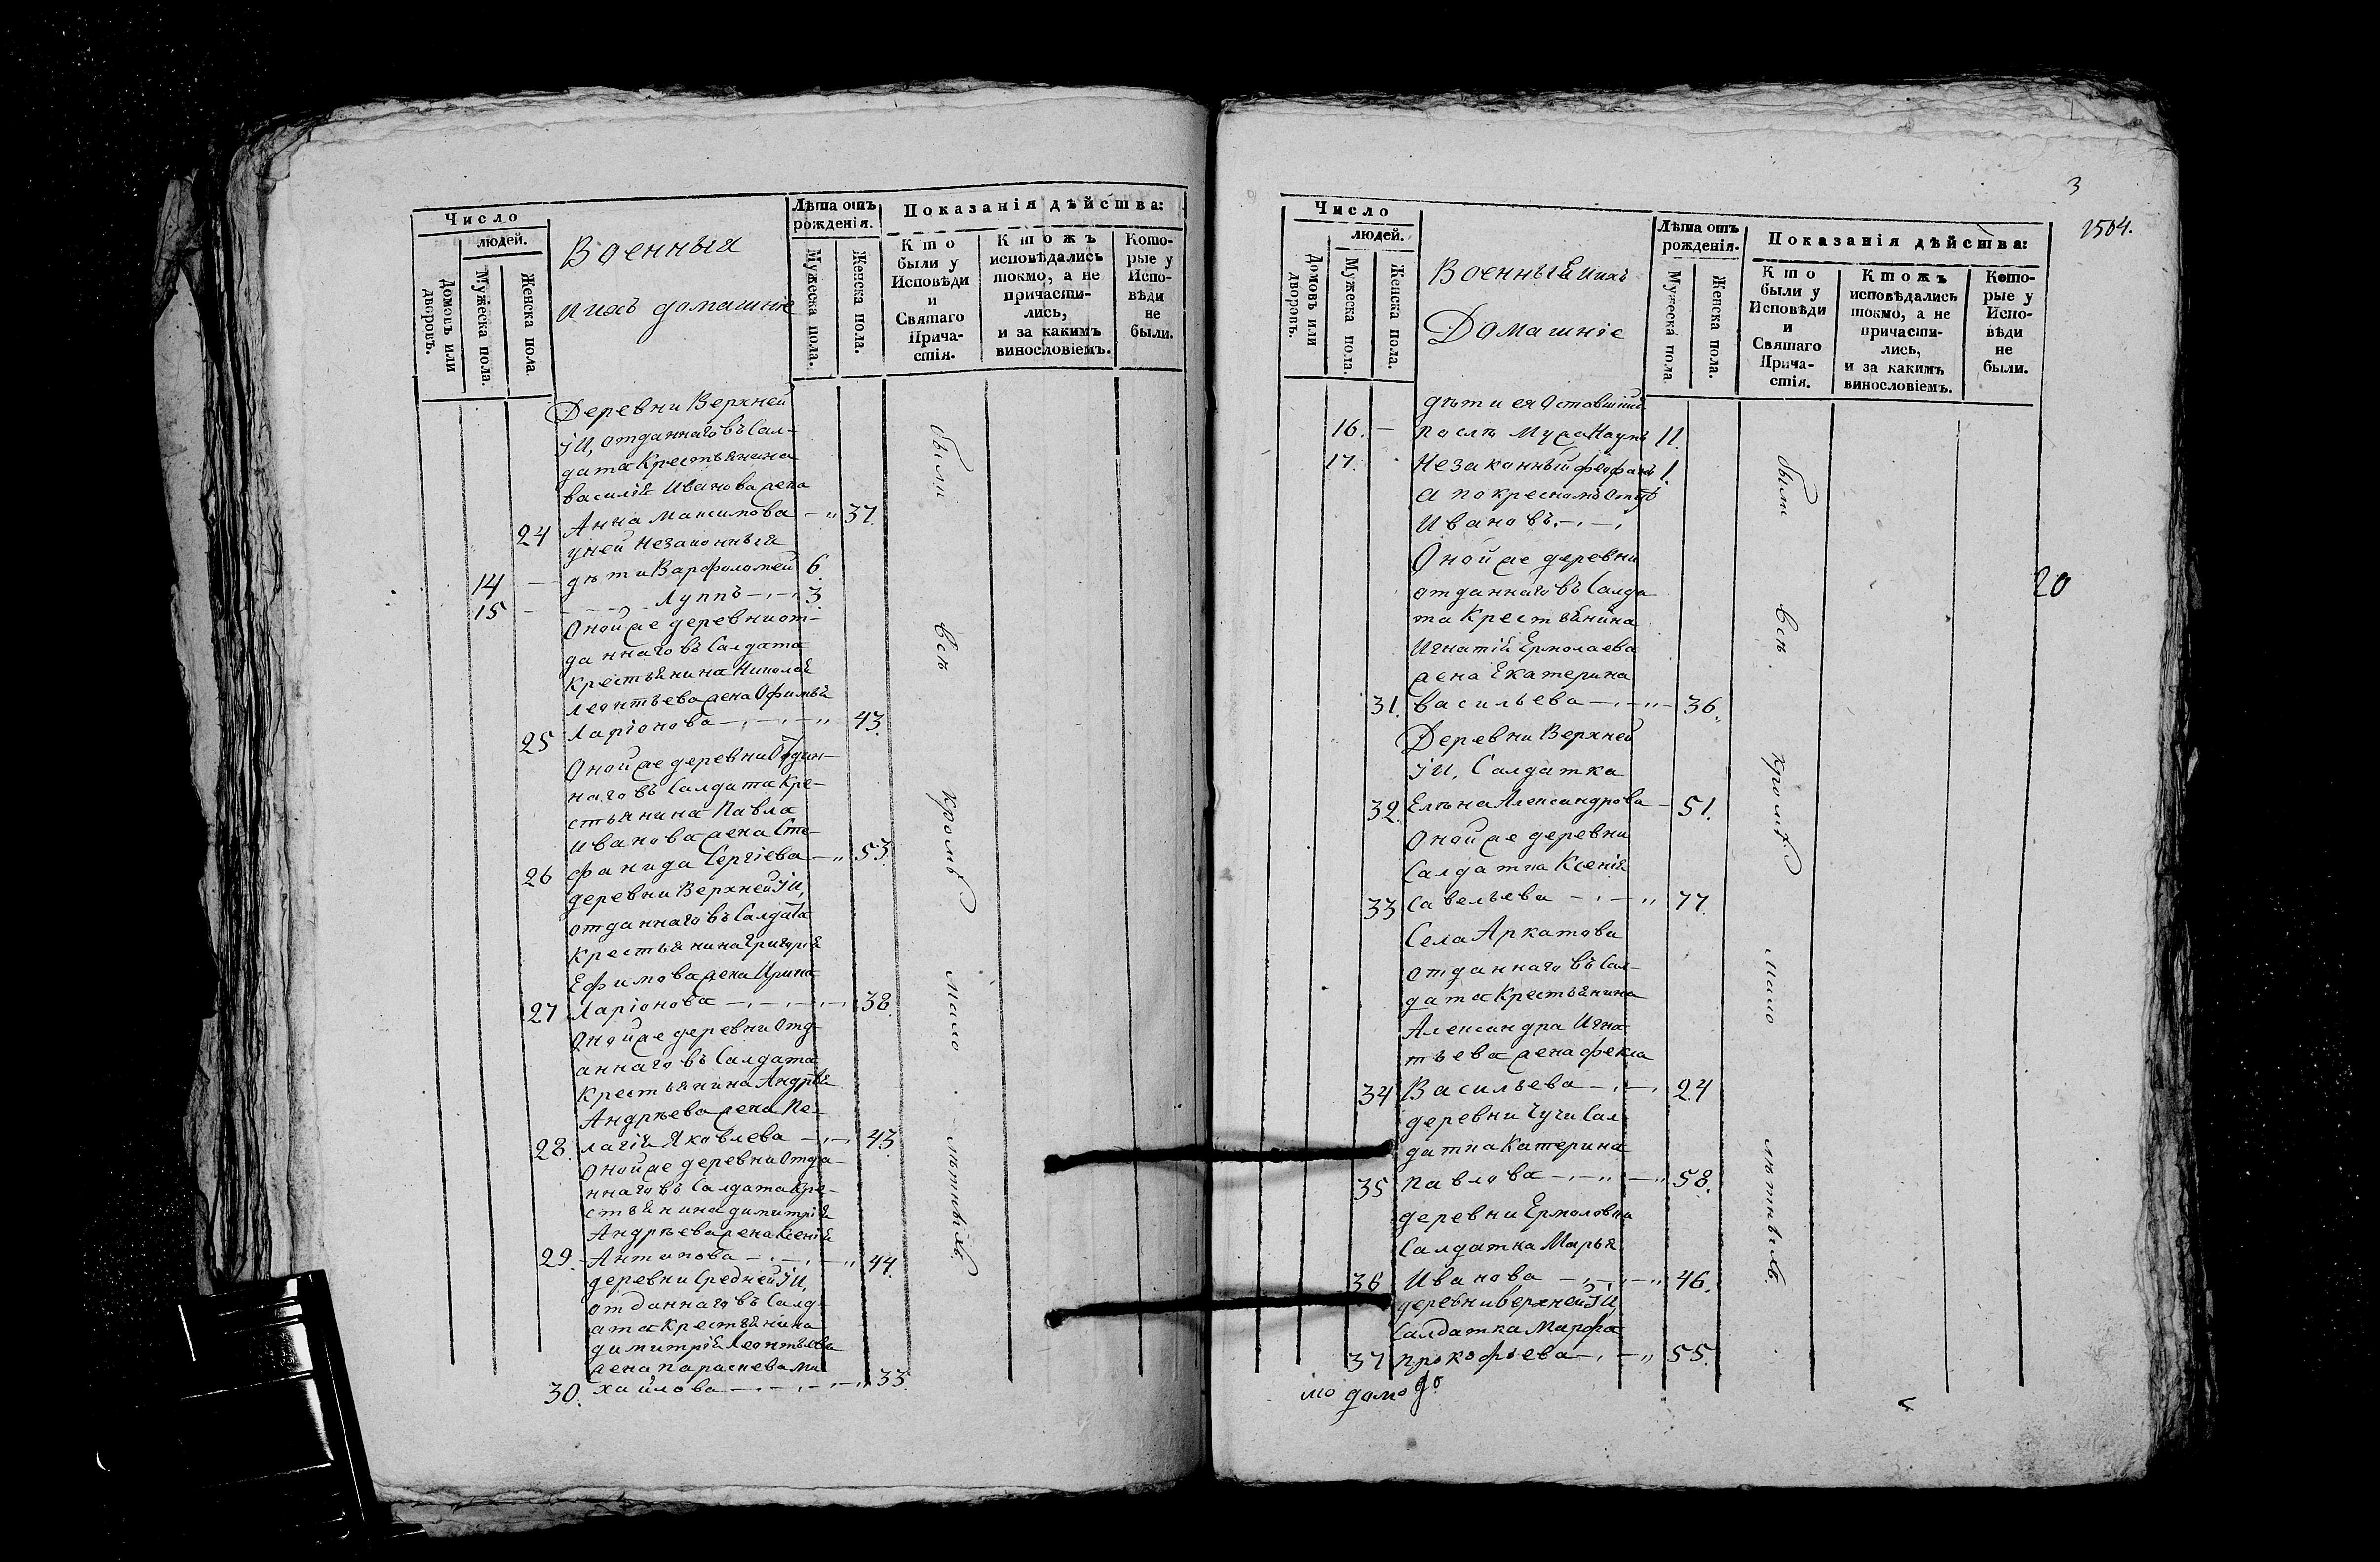 Число
людей.
Домовъ или дворовъ.
Мужеска пола.
Женска пола.
Военныя
ихъ домашніе
Лѣта отъ рожденія.
Мужеска пола.
Женска пола.
Показанія дѣйства:
Кто были у Исповѣди и Святаго Причастія.
Ктожъ исповѣдались токмо, а не причастились, и за какимъ винословіемъ.
Которые у Исповѣди не были.
Деревни Верхней
Іи, отданнаго въ Сал-
дата Крестьянина
василія Иванова жена
24 Анна Максимова 37.
у ней Незаконныя
14 дѣти Варфоломей 6.
15 Луппъ 3.
Оной же деревни от-
даннаго въ Салдата
Крестьянина Николая
Леонтьева жена Офимья
25 Ларіонова 43.
Оной же деревни Отдан-
наго въ Салдата Кре-
стьянина Павла
Иванова жена Сте-
26 фанида Сергіева 53.
деревни Верхней Іи,
отданнаго въ Салдата
Крестьянина Григорія
Ефимова жена Ирина
27 Ларіонова 38.
Оной же деревни Отд-
аннаго въ Салдата
Крестьянина Андрѣя
Андрѣева жена Пе-
28. лагія Яковлева 43.
Оной же деревни Отда-
ннаго въ Салдата Кре-
стьянина димитрія
Андрѣева жена Ксенія
29. Антипова 44.
деревни Средней Іи,
отданнаго въ Салд-
ата Крестьянина
димитрія Леонтьева
жена параскева Ми-
30. хайлова 33.
были всѣ кромѣ мало лѣтныхъ.
3
1504.
Число
людей.
Домовъ или дворовъ.
Мужеска пола.
Женска пола.
Военныя ихъ
Домашніе
Лѣта отъ рожденія.
Мужеска пола
Женска пола.
Показанія дѣйства:
Кто были у Исповѣди и Святаго Причастія.
Ктожъ исповѣдались токмо, а не причастились, и за какимъ винословіемъ.
Которые у Исповѣди не были.
дѣти ея Оставшійся
16. послѣ Мужа Наумъ 11.
17. Незаконный феофанъ 1.
а по кресномъ Отцѣ
Ивановъ
Оной же деревни
отданнаго въ Салда
та Крестьянина
Игнатія Ермолаева
жена Екатерина
31. васильева 36.
Деревни Верхней
Іи, Салдатка
32. Елена Александрова 51.
Оной же деревни
Салдатка Ксенія
33 Савельева 77.
Села Аркатова
отданнаго въ Сал-
дата Крестьянина
Александра Игна-
тьева жена фекла
34 Васильева 24
деревни Чучи Сал
датка Катерина
35 павлова 58.
деревни Ермоловки
Салдатка Марья
36 Иванова 46.
деревни верхней Іи
Салдатка Марфа
37 прокофьева 55.
были всѣ кромѣ мало лѣтныхъ.
20